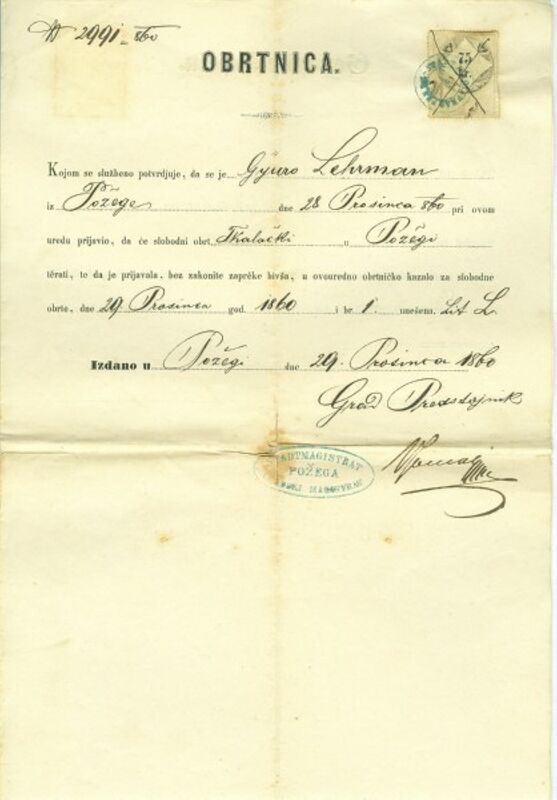 № 2991 860
OBRTNICA.
75
Kojom se službeno potvrdjuje, da se je Gyuro Lehrman
iz Požege dne 28 Prosinca 860 pri ovom
uredu prijavio, da će slobodni obrt Tkalački u Požegi
tërati, te da je prijavala, bez zakonite zaprěke bivša, u ovouredno obrtničko kazalo za slobodne
obrte, dne 29 Prosinca god. 1860 i br 1. unešena. Lit L.
Izdano u Požegi dne 29. Prosinca 1860
Grad Predstojnik
STADTMAGISTRAT
POŽEGA